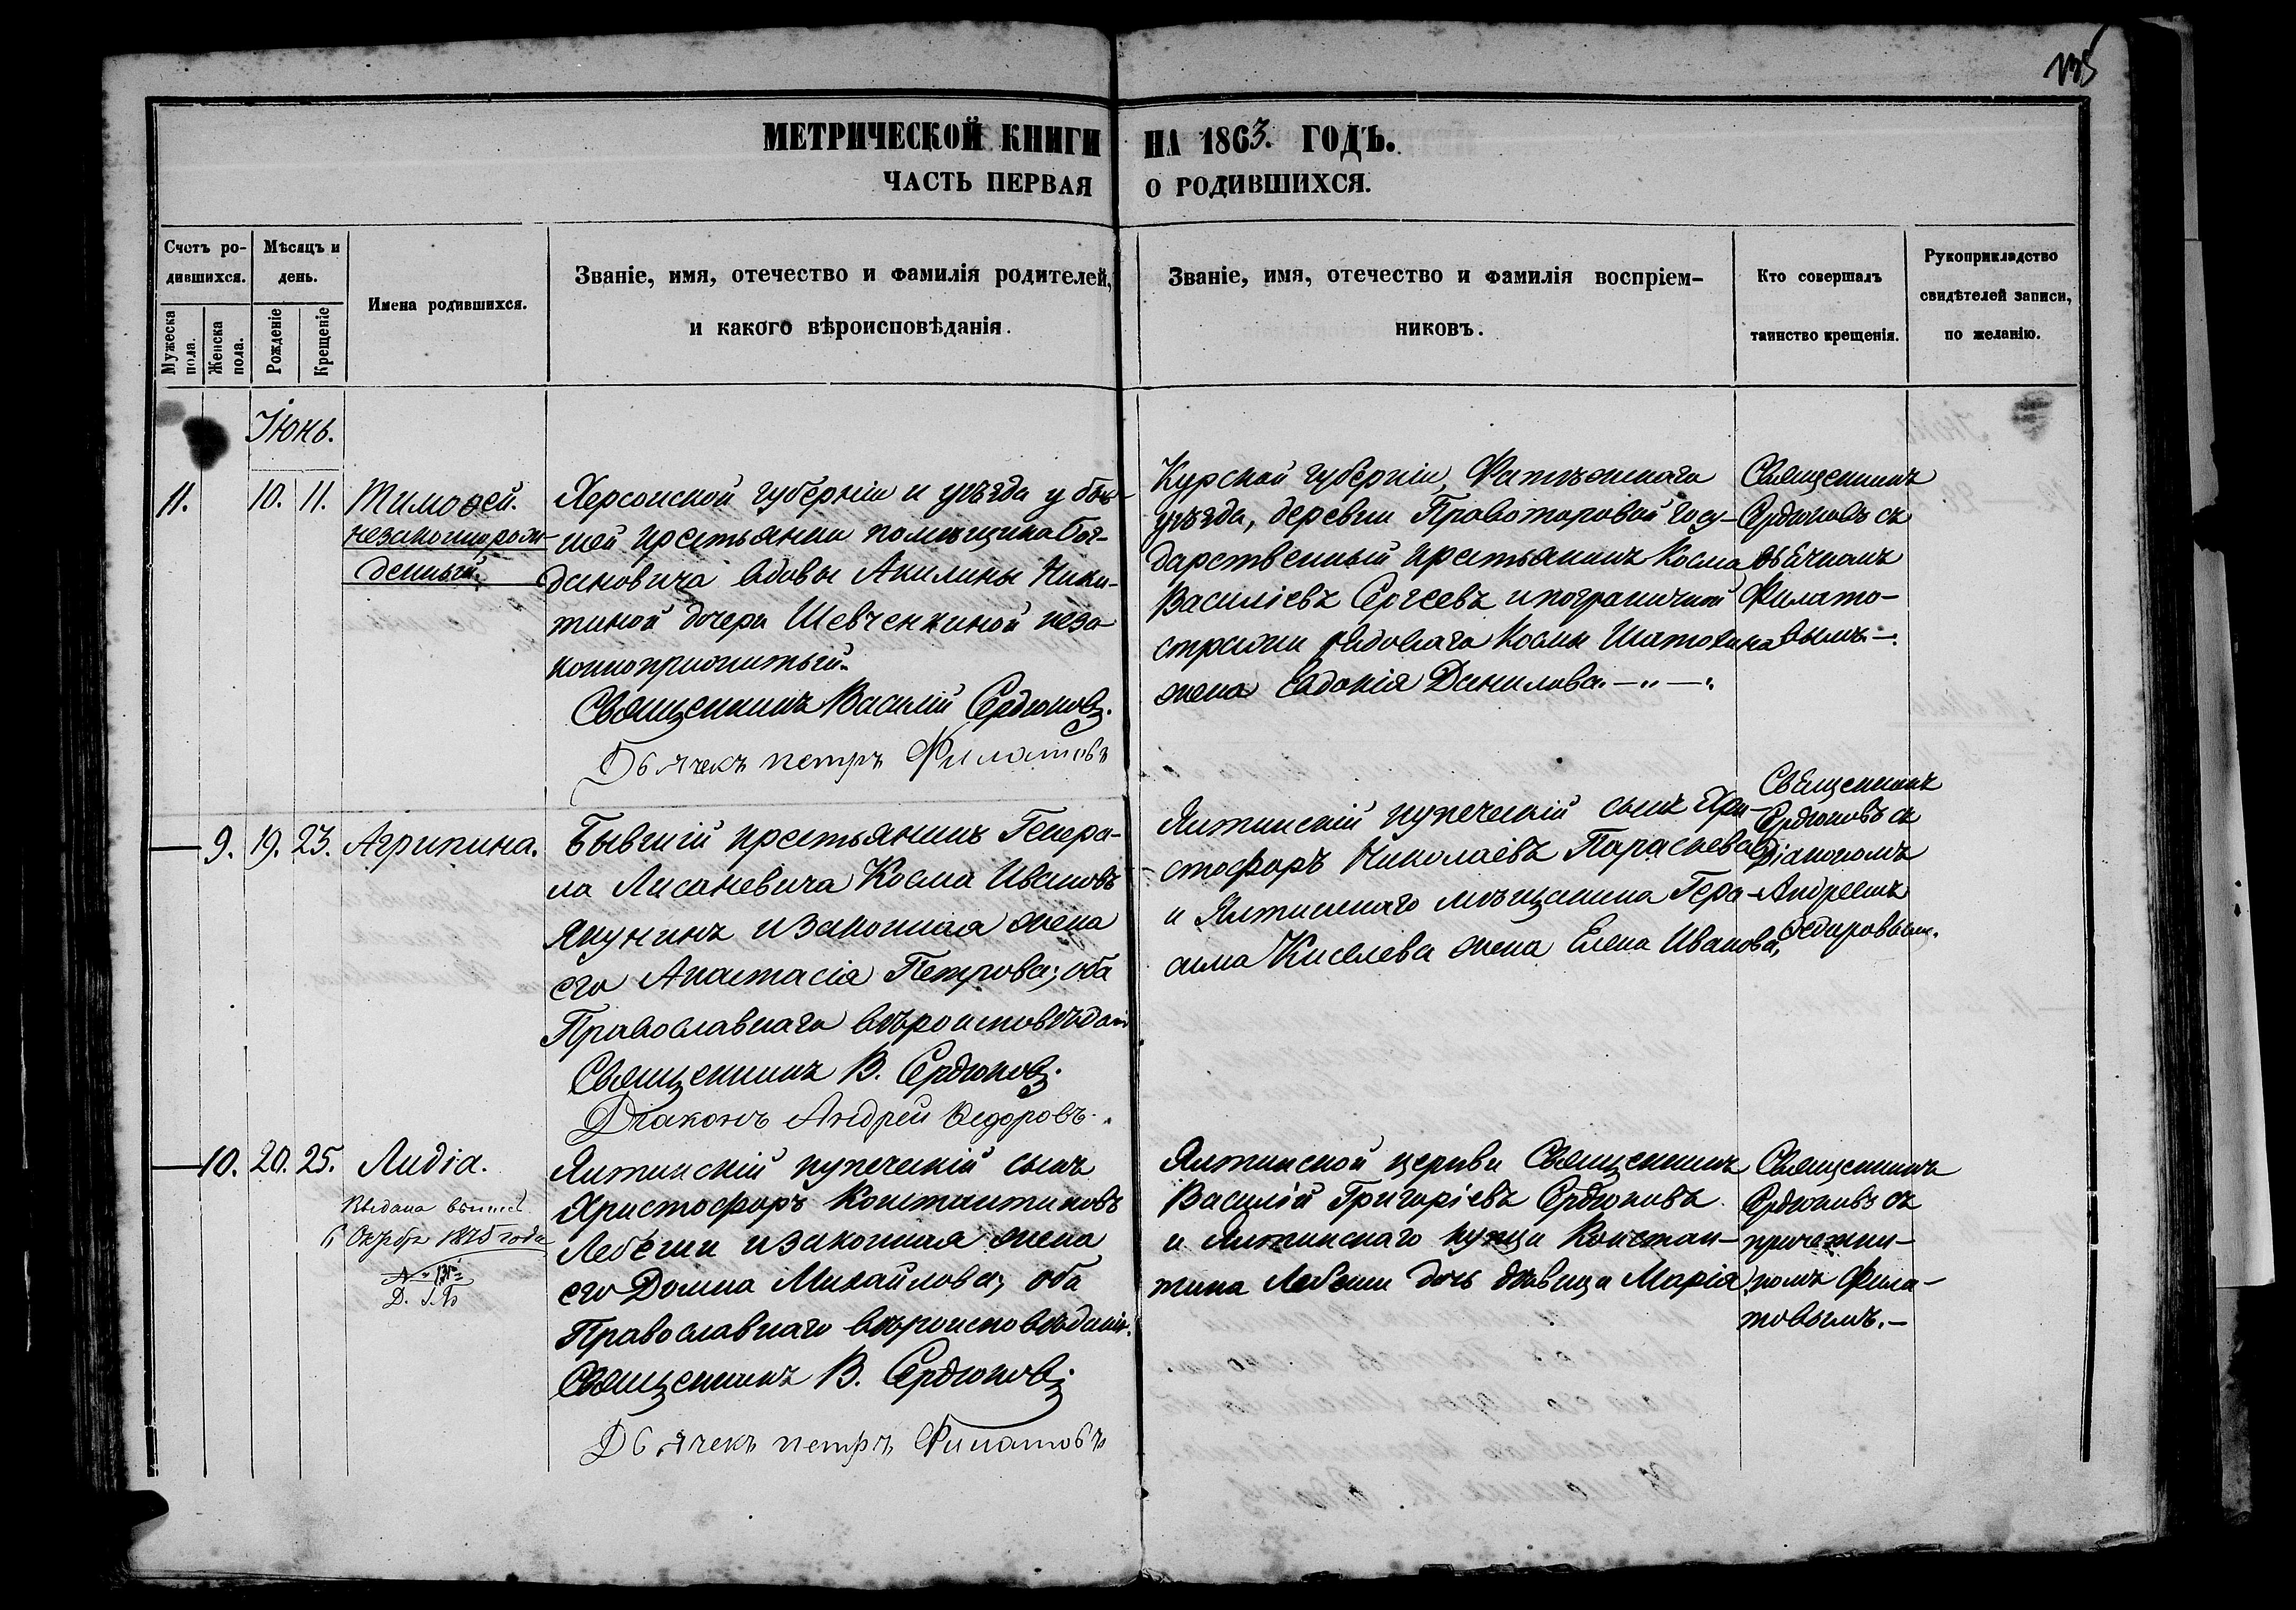 135
МЕТРИЧЕСКОЙ КНИГИ НА 1863. ГОДЪ.
ЧАСТЬ ПЕРВАЯ О РОДИВШИХСЯ.
Счетъ ро-
дившихся.
Мужеска
пола.
Женска
пола.
Мѣсяцъ и
день.
Рожденіе
Крещеніе
Имена родившихся.
Званіе, имя, отечество и фамилія родителей,
и какого вѣроисповѣданія.
Званіе, имя, отечество и фамилія воспріем-
никовъ.
Кто совершалъ
таинство крещенія.
Рукоприкладство
свидѣтелей записи,
по желанію.
Іюнь.
11. 10. 11.
Тимоѳей.
незаконнорож-
денный.
Херсонской губерніи и уѣзда у быв-
шей крестьянки помѣщика Бог-
дановича вдовы Акилины Ники-
тиной дочери Шевченкиной неза-
конноприжитый.
Священникъ Василій Сердюковъ.
Дьячекъ петръ Филатовъ
Курской губерніи, Фатежскаго
уѣзда, деревни Правоторовой госу-
дарственный крестьянинъ Косма
Василіевъ Сергеевъ и пограничной
стражи рядоваго Космы Шатохина
жена Евдокія Данилова.
Священникъ
Сердюковъ съ
дьячкомъ
Филато-
вымъ.
9. 19. 23. Агрипина.
Бывшій крестьянинъ Генера-
ла Лисаневича Косма Ивановъ
Якунинъ и законная жена
его Анастасія Петрова; оба
Православнаго вѣроисповѣдані
Священникъ В. Сердюковъ.
Діаконъ Андрей Ѳедоровъ.
Ялтинскій купеческій сынъ Хри-
стофоръ Николаевъ Параскева
и Ялтинскаго мѣщанина Гера-
сима Киселева жена Елена Иванова,
Священникъ
Сердюковъ съ
Діакономъ
Андреемъ
Ѳедоровымъ.
10. 20. 25. Лидіа.
Выдана
6 Октября 1875 года
№ 135
Ялтинскій купеческій сынъ
Христофоръ Константиновъ
Лебеши и законная жена
его Домна Михайлова; оба
Православнаго вѣроисповѣданія.
Священникъ В. Сердюковъ
Дьячекъ петръ Филатовъ
Ялтинской церкви Священникъ
Василій Григоріевъ Сердюковъ
и Ялтинскаго купца Констан-
тина Лебеши дочь дѣвица Марія.
Священникъ
Сердюковъ съ
причетни-
комъ Фила-
товымъ.